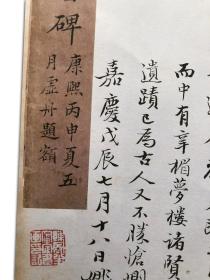 而中有幸楣夢樓諸賢
遺蹟已為古人又不勝愴惻
嘉慶戊辰七月十八日
碑
康熙丙申夏五
月虛舟題額